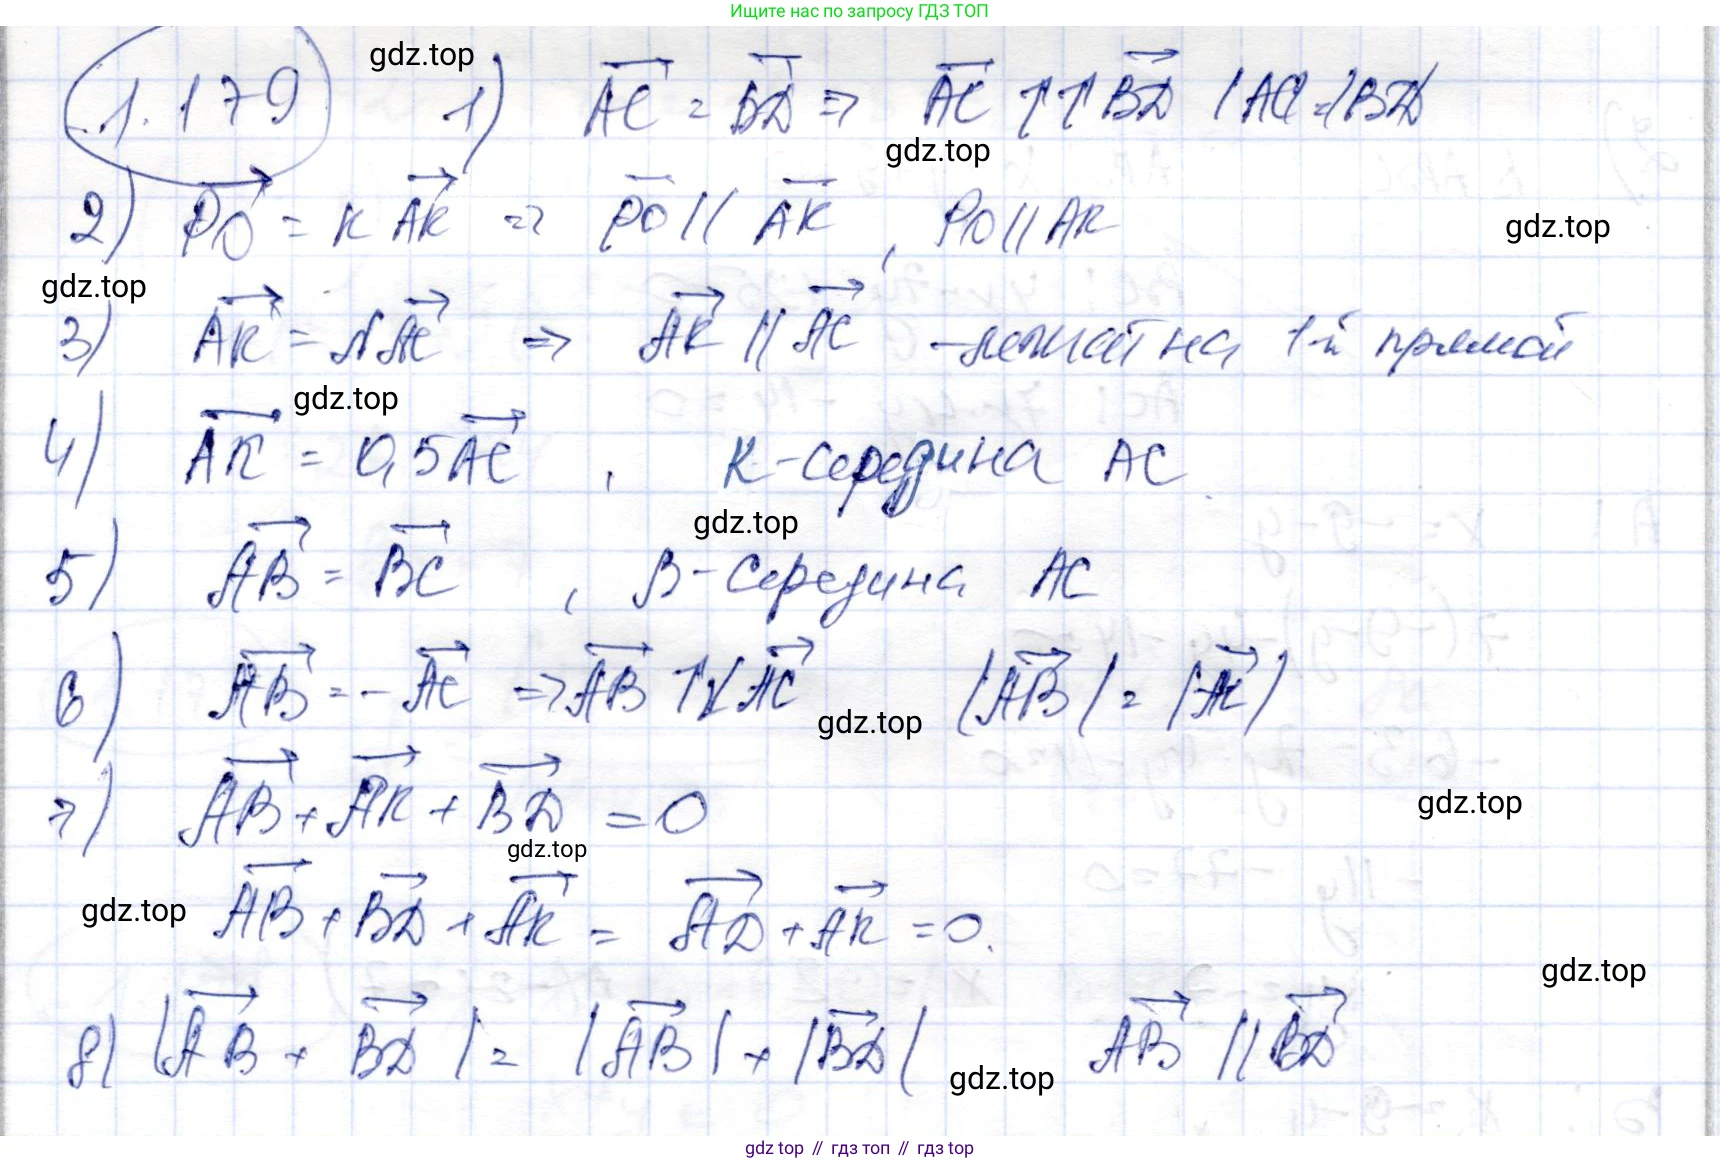 Ищите нас по запросу ГДЗ ТОП
gdz.top
1.179 1) AC = BD ⇒ AC ↑↑ BD |AC| = |BD|
gdz.top
2) PO = K AK ⇒ PO || AK, PO || AK
gdz.top
gdz.top
3) AK = N AC ⇒ AK || AC - лежат на 1-й прямой
gdz.top
4) AK = 0,5 AC , K - середина AC
gdz.top
5) AB = BC , B - середина AC
6) AB = - AC ⇒ AB ↑↓ AC |AB| = |AC|
gdz.top
7) AB + AK + BD = 0
gdz.top
gdz.top
AB + BD + AK = AD + AK = 0.
gdz.top
gdz.top
8) |AB + BD| = |AB| + |BD| AB || BD
gdz.top
gdz top // гдз топ // гдз top